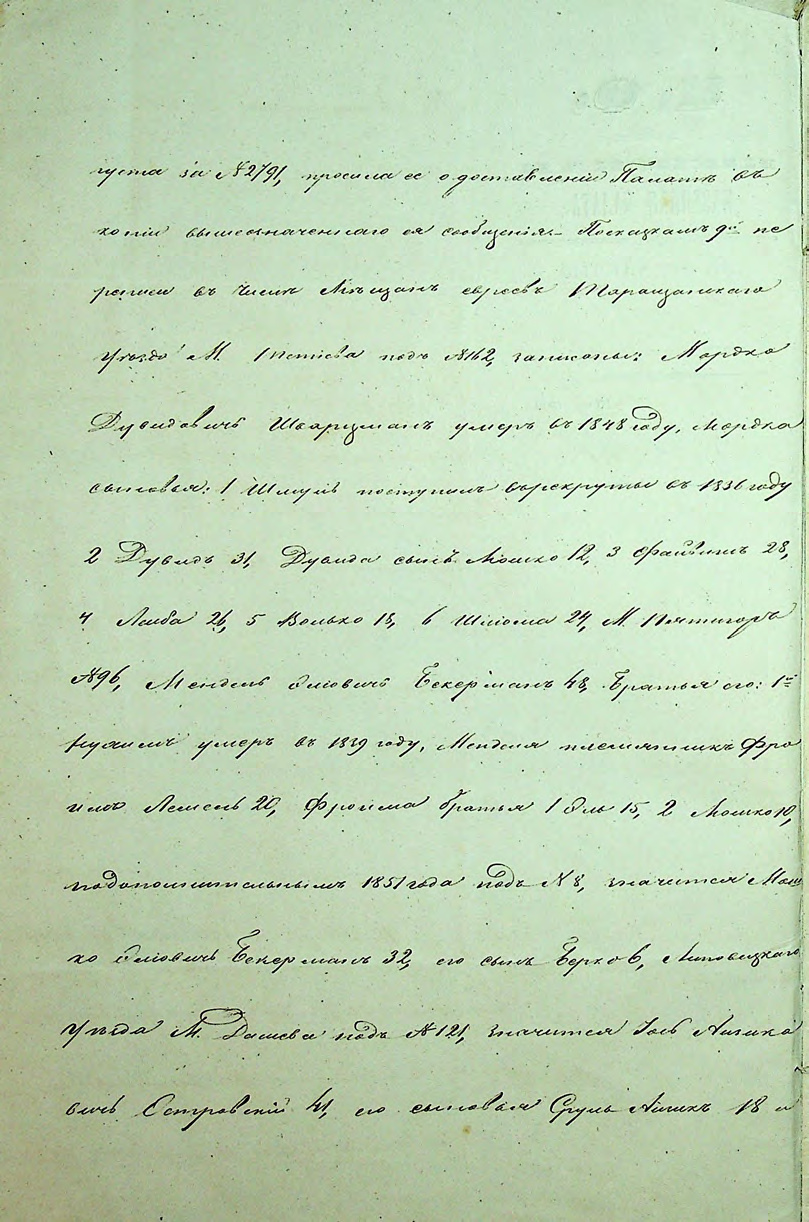 густа за №2791, просила ее о доставленіи Палатѣ въ
копіи вышеозначеннаго ея сообщенія. – По сказкамъ 9й пе
реписи въ числѣ Мѣщанъ евреевъ Таращанскаго
уѣзда М. Тетіева подъ №162, записаны: Мордко
Дувидовичъ Шварцманъ умеръ въ 1848 году, Мордка
сыновья: 1 Шмуль поступилъ въ рекруты въ 1836 году
2 Дувидъ 31, Дувида сынъ Мошко 12, 3 Файвишъ 28,
4 Лейба 26, 5 Волько 18, 6 Шліома 24, М. Пятигоръ
№96, Мендель Эліовичъ Бекерманъ 48, Братья его: 1й
Нухимъ умеръ въ 1839 году, Менделя племянникъ Фро
имъ Лемель 20, Фроима братья 1 Эль 15, 2 Мошко 10,
по дополнительнымъ 1851 года подъ №8, значится Мош
ко Эліовичъ Бекерманъ 32, его сынъ Берко 6, Липовецкаго
уѣзда М. Дашева подъ №121, значится Іось Айзико
вичъ Островскій 41, его сыновья Сруль Айзикъ 18 и